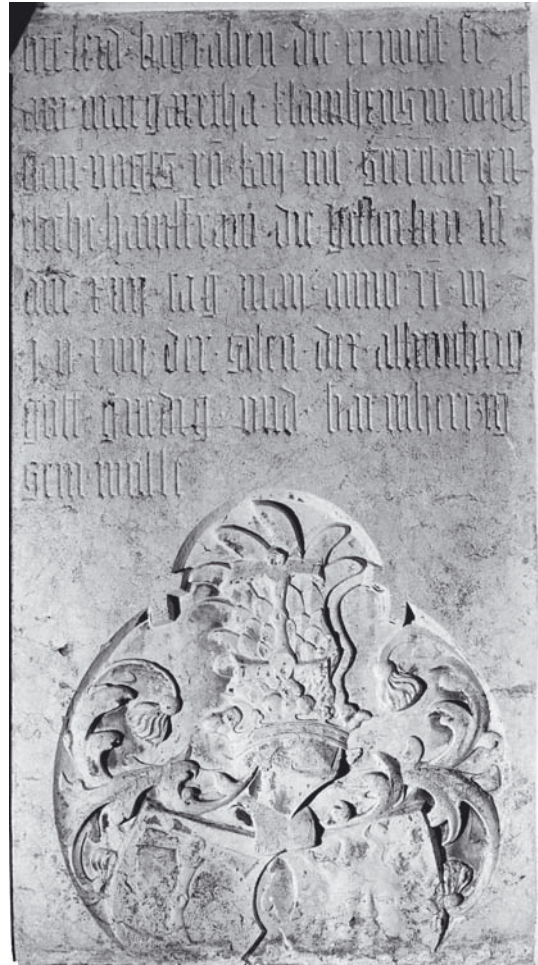 hie · leid · begraben · die · ernvest · fr
aw · margaretha · klamhensin · wolf
gan · unges · rö · kaÿ · mt · Secretarien
eliche hausfrau · die gestorben ist
am · xviij · tag · maÿ · anno
xviij · der · selen · der · allmechtig
gott · gnedig · und · barmherczig
sein · wolle